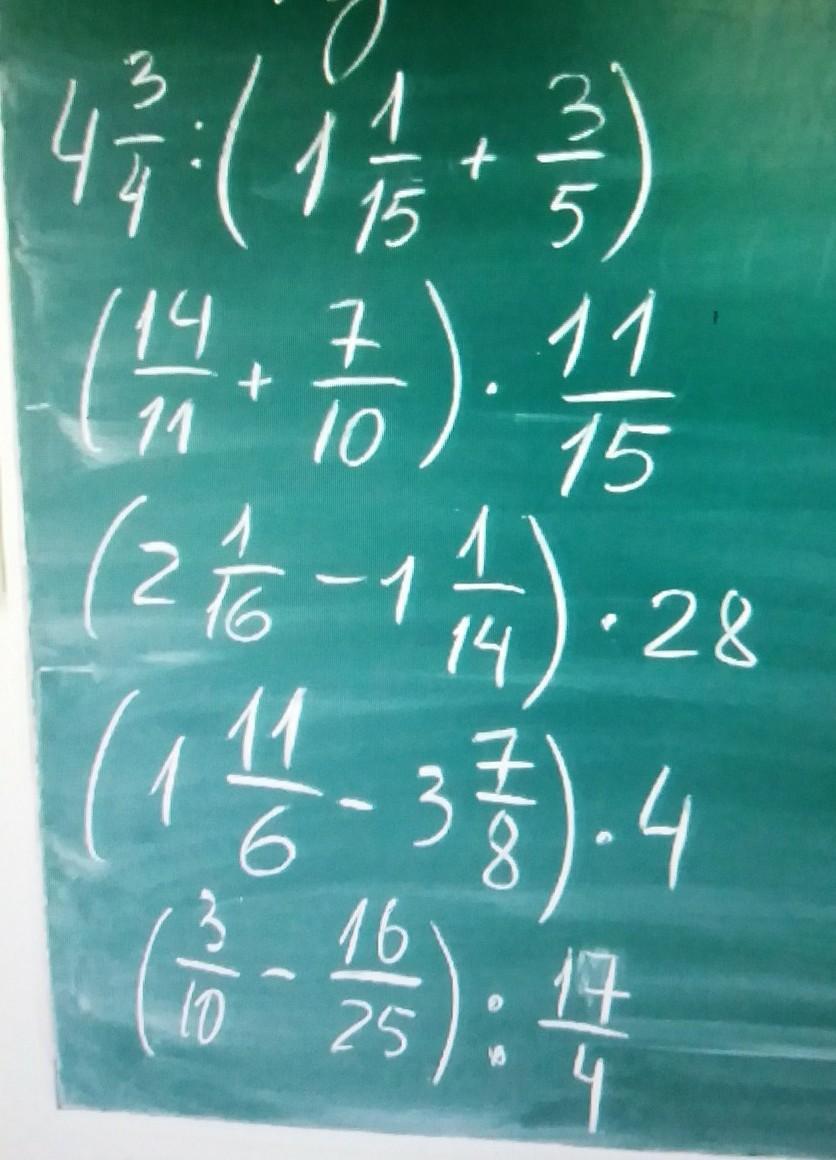 4 3/4 : ( 1 1/15 + 3/5 )
( 14/11 + 7/10 ) · 11/15
( 2 1/16 - 1 1/14 ) · 28
( 1 11/6 - 3 7/8 ) · 4
( 3/10 - 16/25 ) : 17/4